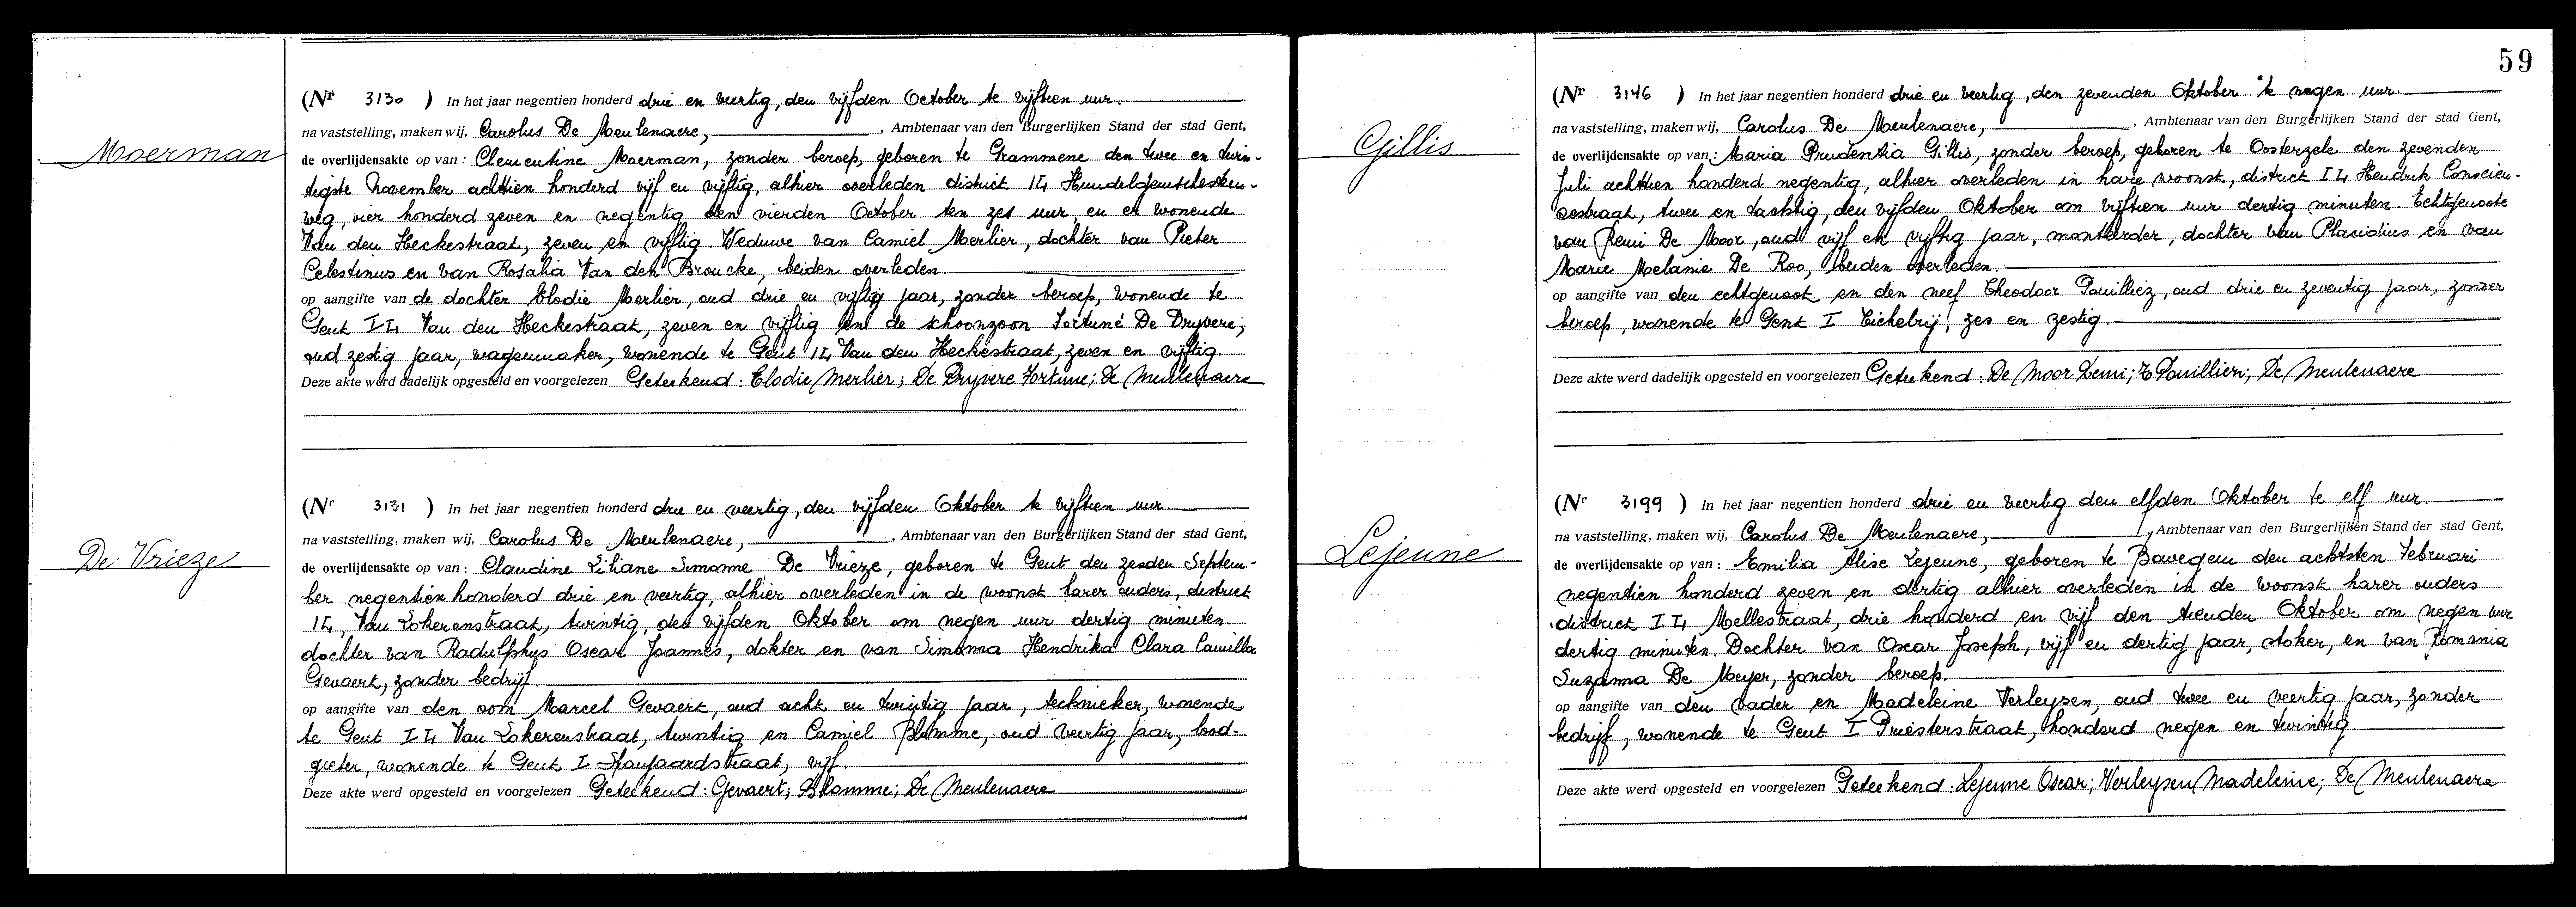 Moerman
(Nr 3130 ) In het jaar negentien honderd drie en veertig, den vijfden October te vijftien uur.
na vaststelling, maken wij, Carolus De Meulenaere, , Ambtenaar van den Burgerlijken Stand der stad Gent,
de overlijdensakte op van : Clementine Moerman, zonder beroep, geboren te Grammene den twee en twin-
tigste November achttien honderd vijf en vijftig, alhier overleden district II, Hundelgemschesteen-
weg, vier honderd zeven en negentig den vierden October ten zes uur, en er wonende
Van den Heckestraat, zeven en vijftig. Weduwe van Camiel Merlier, dochter van Pieter
Celestinus en van Rosalia Van den Broucke, beiden overleden.
op aangifte van de dochter Elodie Merlier, oud drie en vijftig jaar, zonder beroep, wonende te
Gent II, Van den Heckestraat, zeven en vijftig en de schoonzoon Fortuné De Dryvere,
oud zestig jaar, wagenmaker, wonende te Gent II, Van den Heckestraat, zeven en vijftig.
Deze akte werd dadelijk opgesteld en voorgelezen Geteekend : Elodie Merlier ; De Dryvere Fortune ; De Meulenaere
De Vrieze
(Nr 3131 ) In het jaar negentien honderd drie en veertig, den vijfden Oktober te vijftien uur.
na vaststelling, maken wij, Carolus De Meulenaere, , Ambtenaar van den Burgerlijken Stand der stad Gent,
de overlijdensakte op van : Claudine Liliane Simonne De Vrieze, geboren te Gent den zesden Septem-
ber negentien honderd drie en veertig, alhier overleden in de woonst harer ouders, district
II, Van Lokerenstraat, twintig, den vijfden Oktober om negen uur dertig minuten.
dochter van Radulphus Oscar Joannes, dokter en van Simonna Hendrika Clara Camilla
Gevaert, zonder bedrijf.
op aangifte van den oom Marcel Gevaert, oud acht en twintig jaar, technieker, wonende
te Gent II, Van Lokerenstraat, twintig en Camiel Blomme, oud veertig jaar, lood-
gieter, wonende te Gent I Spanjaardstraat, vijf.
Deze akte werd opgesteld en voorgelezen Geteekend : Gevaert ; Blomme ; De Meulenaere
59
Gillis
(Nr 3146 ) In het jaar negentien honderd drie en veertig, den zevenden Oktober te negen uur.
na vaststelling, maken wij, Carolus De Meulenaere, , Ambtenaar van den Burgerlijken Stand der stad Gent,
de overlijdensakte op van : Maria Prudentia Gillis, zonder beroep, geboren te Oosterzele den zevenden
Juli achttien honderd negentig, alhier overleden in hare woonst, district II, Hendrik Conscien-
cestraat, twee en tachtig, den vijfden Oktober om vijftien uur dertig minuten. Echtgenoote
van Remi De Moor, oud vijf en vijftig jaar, monteerder, dochter van Placidius en van
Marie Melanie De Roo, beiden overleden.
op aangifte van den echtgenoot en den neef Theodoor Pouilliez, oud drie en zeventig jaar, zonder
beroep, wonende te Gent I Eichelrij, zes en zestig.
Deze akte werd dadelijk opgesteld en voorgelezen Geteekend : De Moor Remi ; Pouillien ; De Meulenaere
Lejeune
(Nr 3199 ) In het jaar negentien honderd drie en veertig den elfden Oktober te elf uur.
na vaststelling, maken wij, Carolus De Meulenaere, , Ambtenaar van den Burgerlijken Stand der stad Gent,
de overlijdensakte op van : Emilia Alise Lejeune, geboren te Bavegem den achtsten Februari
negentien honderd zeven en dertig alhier overleden in de woonst harer ouders
district II, Mellestraat, drie honderd en vijf den tienden Oktober om negen uur
dertig minuten. Dochter van Oscar Joseph, vijf en dertig jaar, stoker, en van Romania
Suzanna De Meyer, zonder beroep.
op aangifte van den vader en Madeleine Verleysen, oud twee en veertig jaar, zonder
bedrijf, wonende te Gent I Priesterstraat, honderd negen en twintig.
Deze akte werd opgesteld en voorgelezen Geteekend : Lejeune Oscar ; Verleysen Madeleine ; De Meulenaere